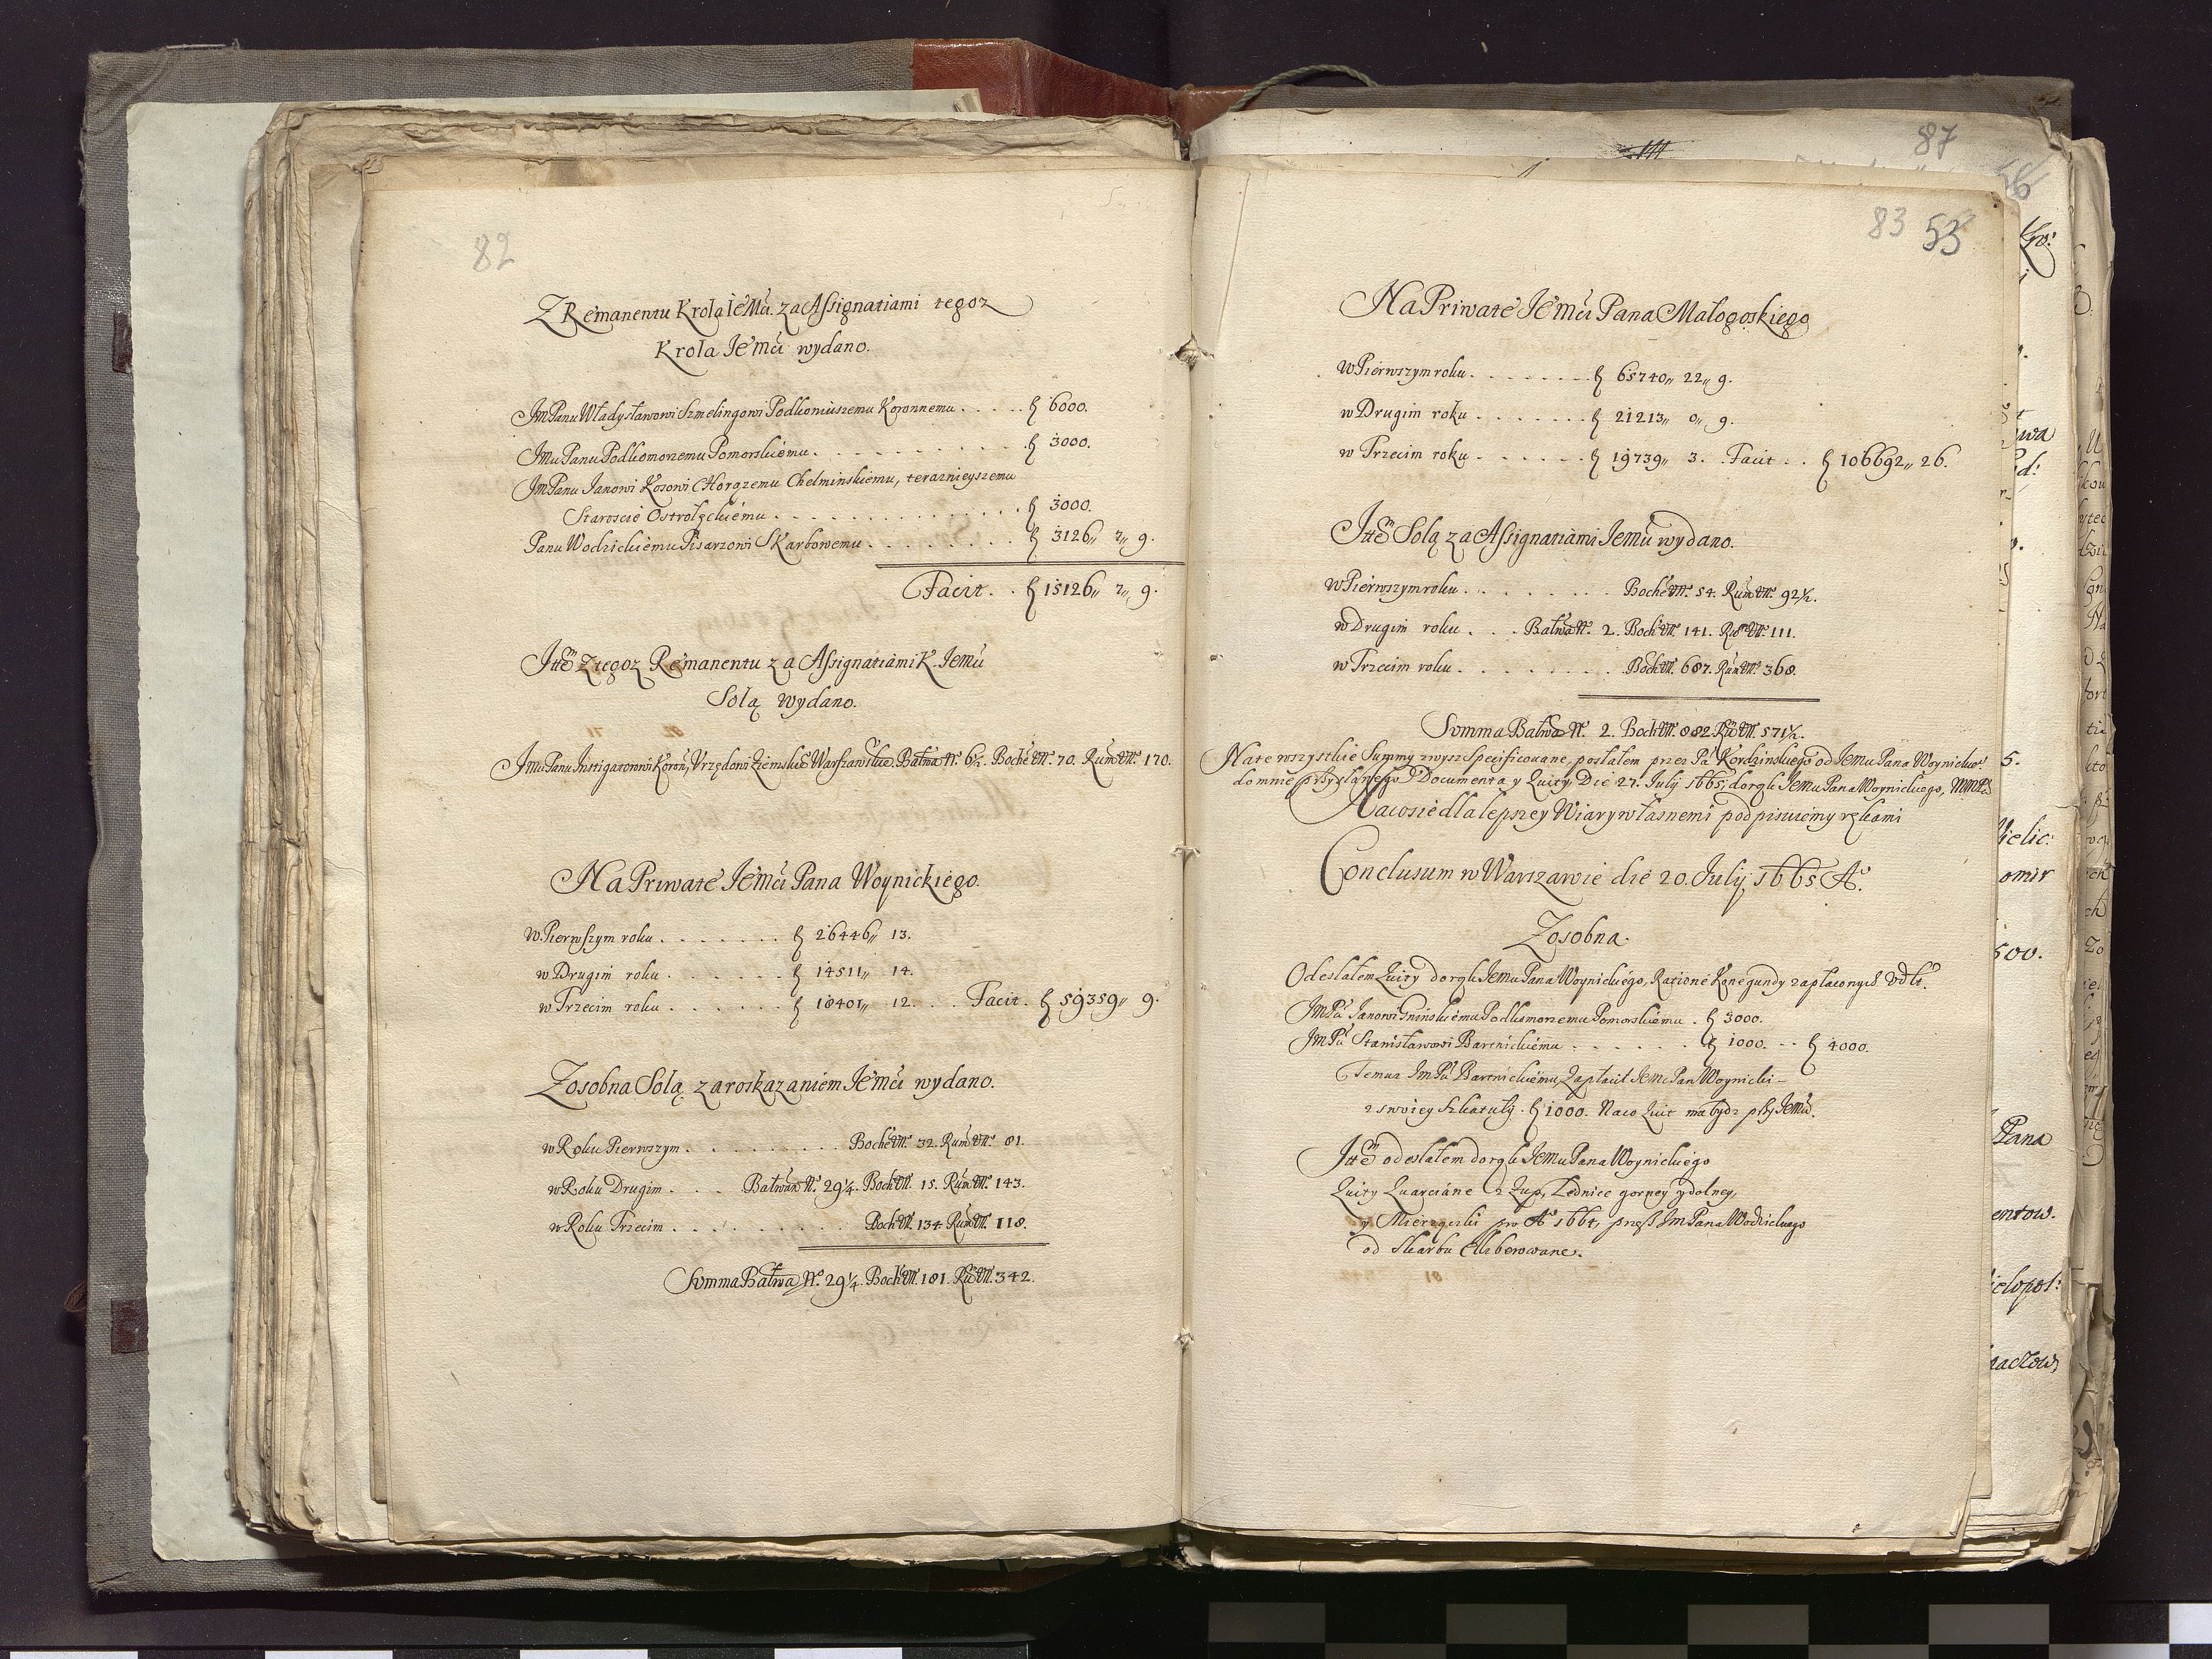 82
Z Remanentu Krola Je Mći. za Assignatiami tegoz
Krola Jemći wydano.
Jm Panu Władysławowi Szmelingowi Podkoniuszemu Koronnemu . . . . . ƒ 6000.
Jmu Panu Podkomorzemu Pomorskiemu . . . . . . . . . . ƒ 3000.
Jm Panu Janowi Kosowi Chorązemu Chelminskiemu, teraznieyszemu
Staroscie Ostrołęckiemu . . . . . . . . . . . . . . . ƒ 3000.
Panu Wodzickiemu Pisarzowi Skarbowemu . . . . . . . . ƒ 3126,, 7,, 9.
Facit. . ƒ 15126,, 7,, 9.
Ittē Z tegoz Remanentu za Assignatiami K. Jemći
Solą wydano.
Jmu Panu Instigatorowi Koron, Vrzędowi Ziemskie Warszawskie Bałwa N. 6½. Boche N. 70. Rum N. 170.
Na Priwate Jemći Pana Woynickiego.
w Pierwszym roku . . . . . . . ƒ 26446,, 13.
w Drugim roku . . . . . . . ƒ 14511,, 14.
w Trzecim roku . . . . . . . ƒ 18401,, 12. . . Facit. ƒ 59359,, 9.
Zosobna Solą, za roskazaniem Jemći wydano.
w Roku Pierwszym . . . . . . . . . Boche N. 32. Rum N. 81.
w Roku Drugim . . . . Bałwan N. 29¼. Boch N. 15. Rum N. 143.
w Roku Trzecim . . . . . . . . . . Boch N. 134 Rum N. 118.
Summa Bałwa N. 29¼. Boch N. 181. Rū N. 342.
87
83 53
Na Priwate Jemći Pana Małogoskiego
w Pierwszym roku. . . . . . . . ƒ 65740,, 22,, 9.
w Drugim roku . . . . . . . ƒ 21213,, 0,, 9.
w Trzecim roku . . . . . . ƒ 19739,, 3. . Facit . . ƒ 106692,, 26.
Ittē Solą za Assignatiami Jemći wydano.
w Pierwszym roku . . . . . . . . Boche N. 54. Rum N. 92½.
w Drugim roku . . . Bałwa N. 2. Boch N. 141. Rū N. 111.
w Trzecim roku . . . . . . . . Boch N. 687. Rum N. 368.
Summa Bałwa N. 2. Boch N. 882. Rū N. 571½.
Na te wszystkie Summy zwysz Specificowane, posłałem przez Pa Kordzinskiego od Jemu Pana Woynickie:
do mnie przysłanego Documenta y Quity, Die 27. July 1665, do rąk Jemu Pana Woynickiego,
Na co sie dla lepszey Wiary własnemi podpisuiemy rękami
Conclusum w Warszawie die 20. July, 1665 A.
Zosobna.
Odesłałem Quity do rąk Jemu Pana Woynickiego, Ratione Konegundy zapłaconych
Jm Pū Janowi Gninskiemu Podkomorzemu Pomorskiemu . ƒ 3000.
Jm Pū Stanisławowi Bartnickiemu . . . . . . . ƒ 1000. . . ƒ 4000.
Temuz Jm Pū Bartnickiemu Zapłacił Jemc Pan Woynicki –
z swoiey Szkatuły . ƒ 1000. Na co Quit ma bydz przy Jemu.
Ittē odesłałem do rąk Jemu Pana Woynickiego
Quity Quarciane z Zup, Lednice gorney y dolney,
y Mierzączki pro A 1664, przess Jm Pana Wodzickiego
od Skarbu Eliberowane.